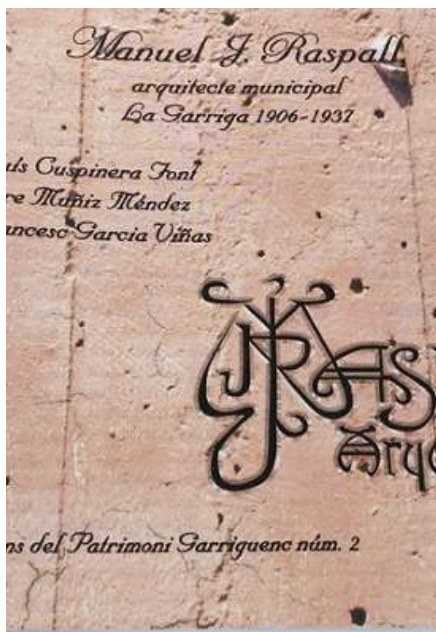 Manuel J. Raspall
arquitecte municipal
La Garriga 1906-1937
uls Cuspinera Font
re Muñiz Méndez
ancesc Garcia Viñas
MJRAS
Arq
ns del Patrimoni Garriguenc núm. 2